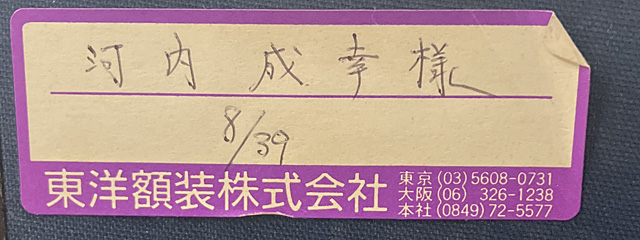 河内 成幸様
8/39
東洋額装株式会社
東京(03)5608-0731
大阪(06) 326-1238
本社(0849)72-5577